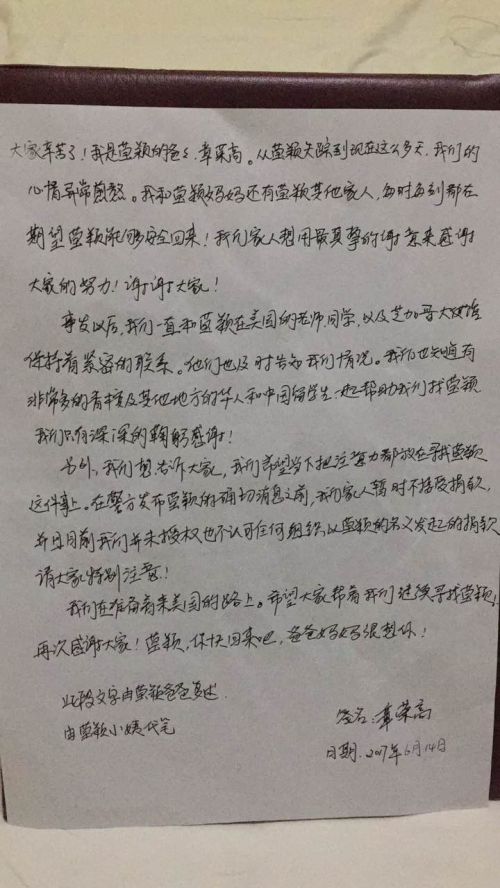 大家辛苦了！我是莹颖的爸爸，章荣高。从莹颖失踪到现在这么多天，我们的
心情异常感慨。我和莹颖妈妈还有莹颖其他家人，每时每刻都在
期望莹颖能够安全回来！我们家人想用最真挚的谢意来感谢
大家的努力！谢谢大家！
事发以后，我们一直和莹颖在美国的老师同学，以及芝加哥大使馆
保持着紧密的联系。他们也及时告知我们情况。我们也知道有
非常多的香槟及其他地方的华人和中国留学生一起帮助我们找莹颖
我们只有深深的鞠躬感谢！
另外，我们想告诉大家，我们希望当下把注意力都放在寻找莹颖
这件事上。在警方发布莹颖的确切消息之前，我们家人暂时不接受捐款，
并且目前我们并未授权也不认可任何组织以莹颖的名义发起的捐款
请大家特别注意！
我们在准备着来美国的路上。希望大家帮着我们继续寻找莹颖！
再次感谢大家！莹颖，你快回来吧，爸爸妈妈很想你！
此段文字由莹颖爸爸口述
由莹颖小姨代笔
签名：章荣高
日期：2017年6月14日